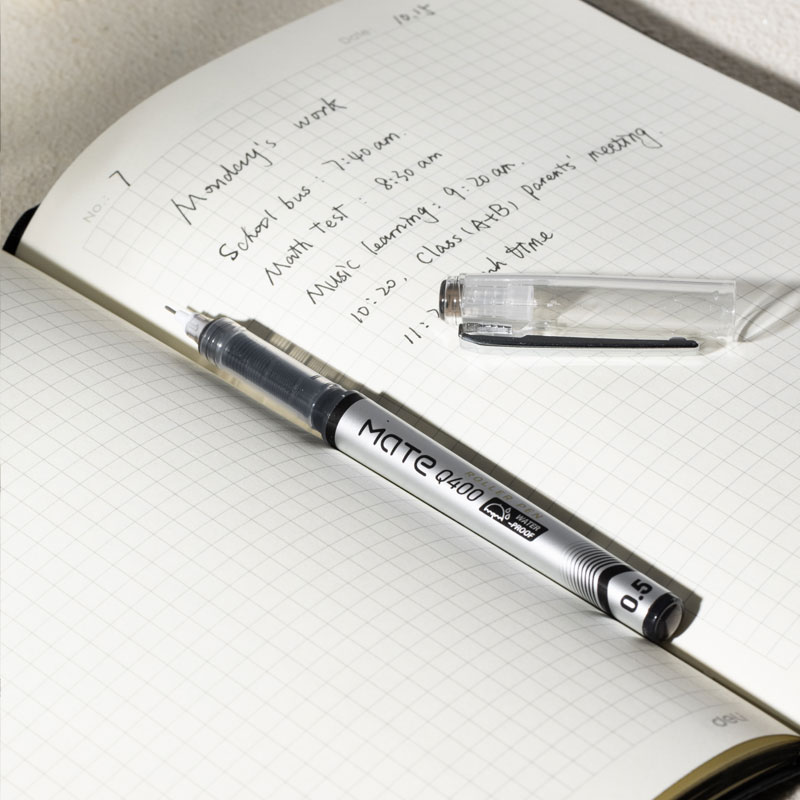 Date 10.15
NO: 7
Monday's work
School bus: 7:40 am.
Math test: 8:30 am
Music learning: 9:20 am.
10:20, Class (A+B) parents' meeting.
11: time
MATE Q400
ROLLER PEN
WATER
-PROOF
0.5
deli